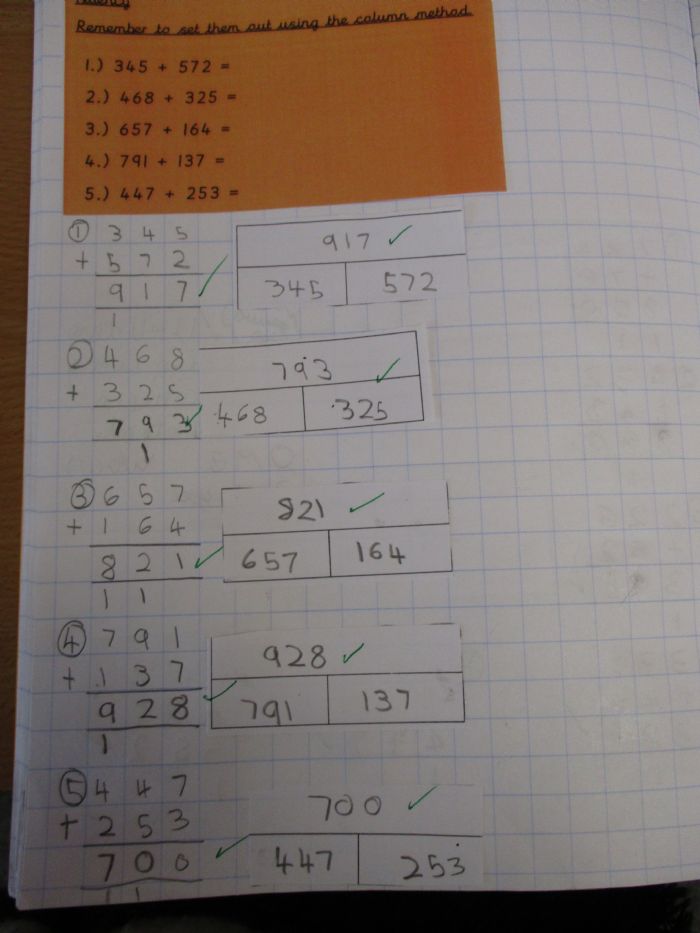 Fluency
Remember to set them out using the column method.
1.) 345 + 572 =
2.) 468 + 325 =
3.) 657 + 164 =
4.) 791 + 137 =
5.) 447 + 253 =
① 3 4 5
+ 5 7 2
9 1 7
1
917
345 572
② 4 6 8
+ 3 2 5
7 9 3
1
793
468 325
③ 6 5 7
+ 1 6 4
8 2 1
1 1
821
657 164
④ 7 9 1
+ 1 3 7
9 2 8
1
928
791 137
⑤ 4 4 7
+ 2 5 3
7 0 0
1 1
700
447 253